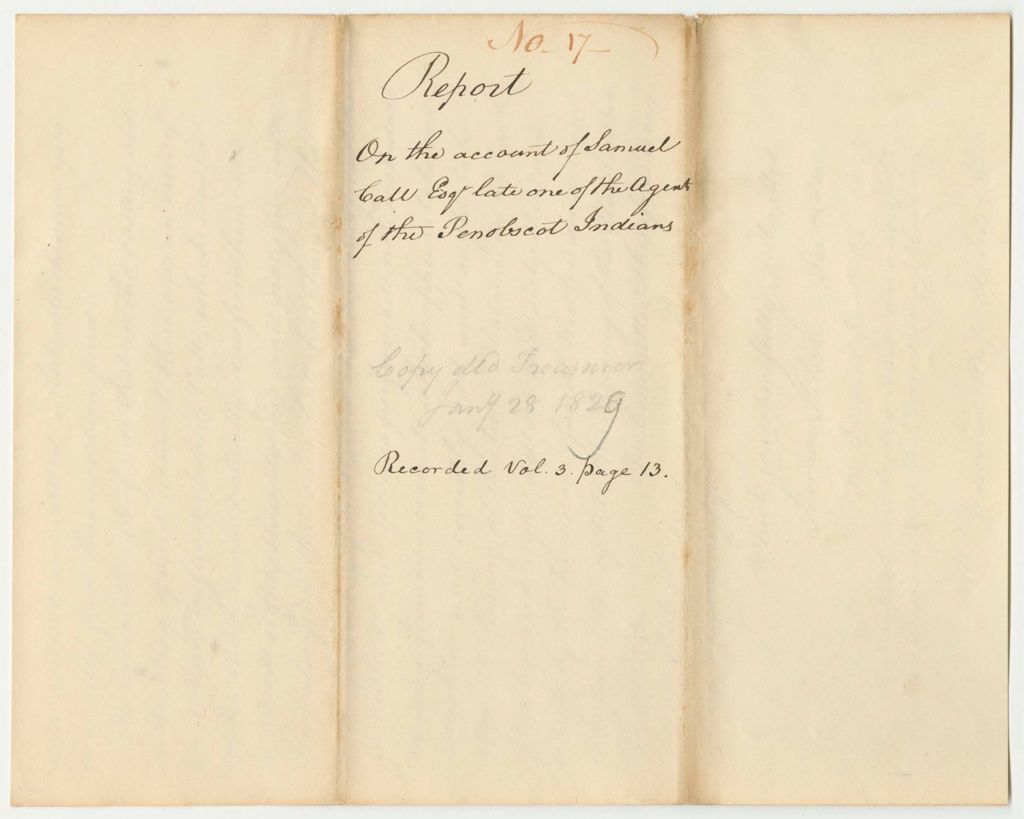 No. 17
Report
On the account of Samuel
Call Esqr late one of the Agent
of the Penobscot Indians
Copy dld Treasurer
Jany 28 1829
Recorded Vol. 3. page 13.